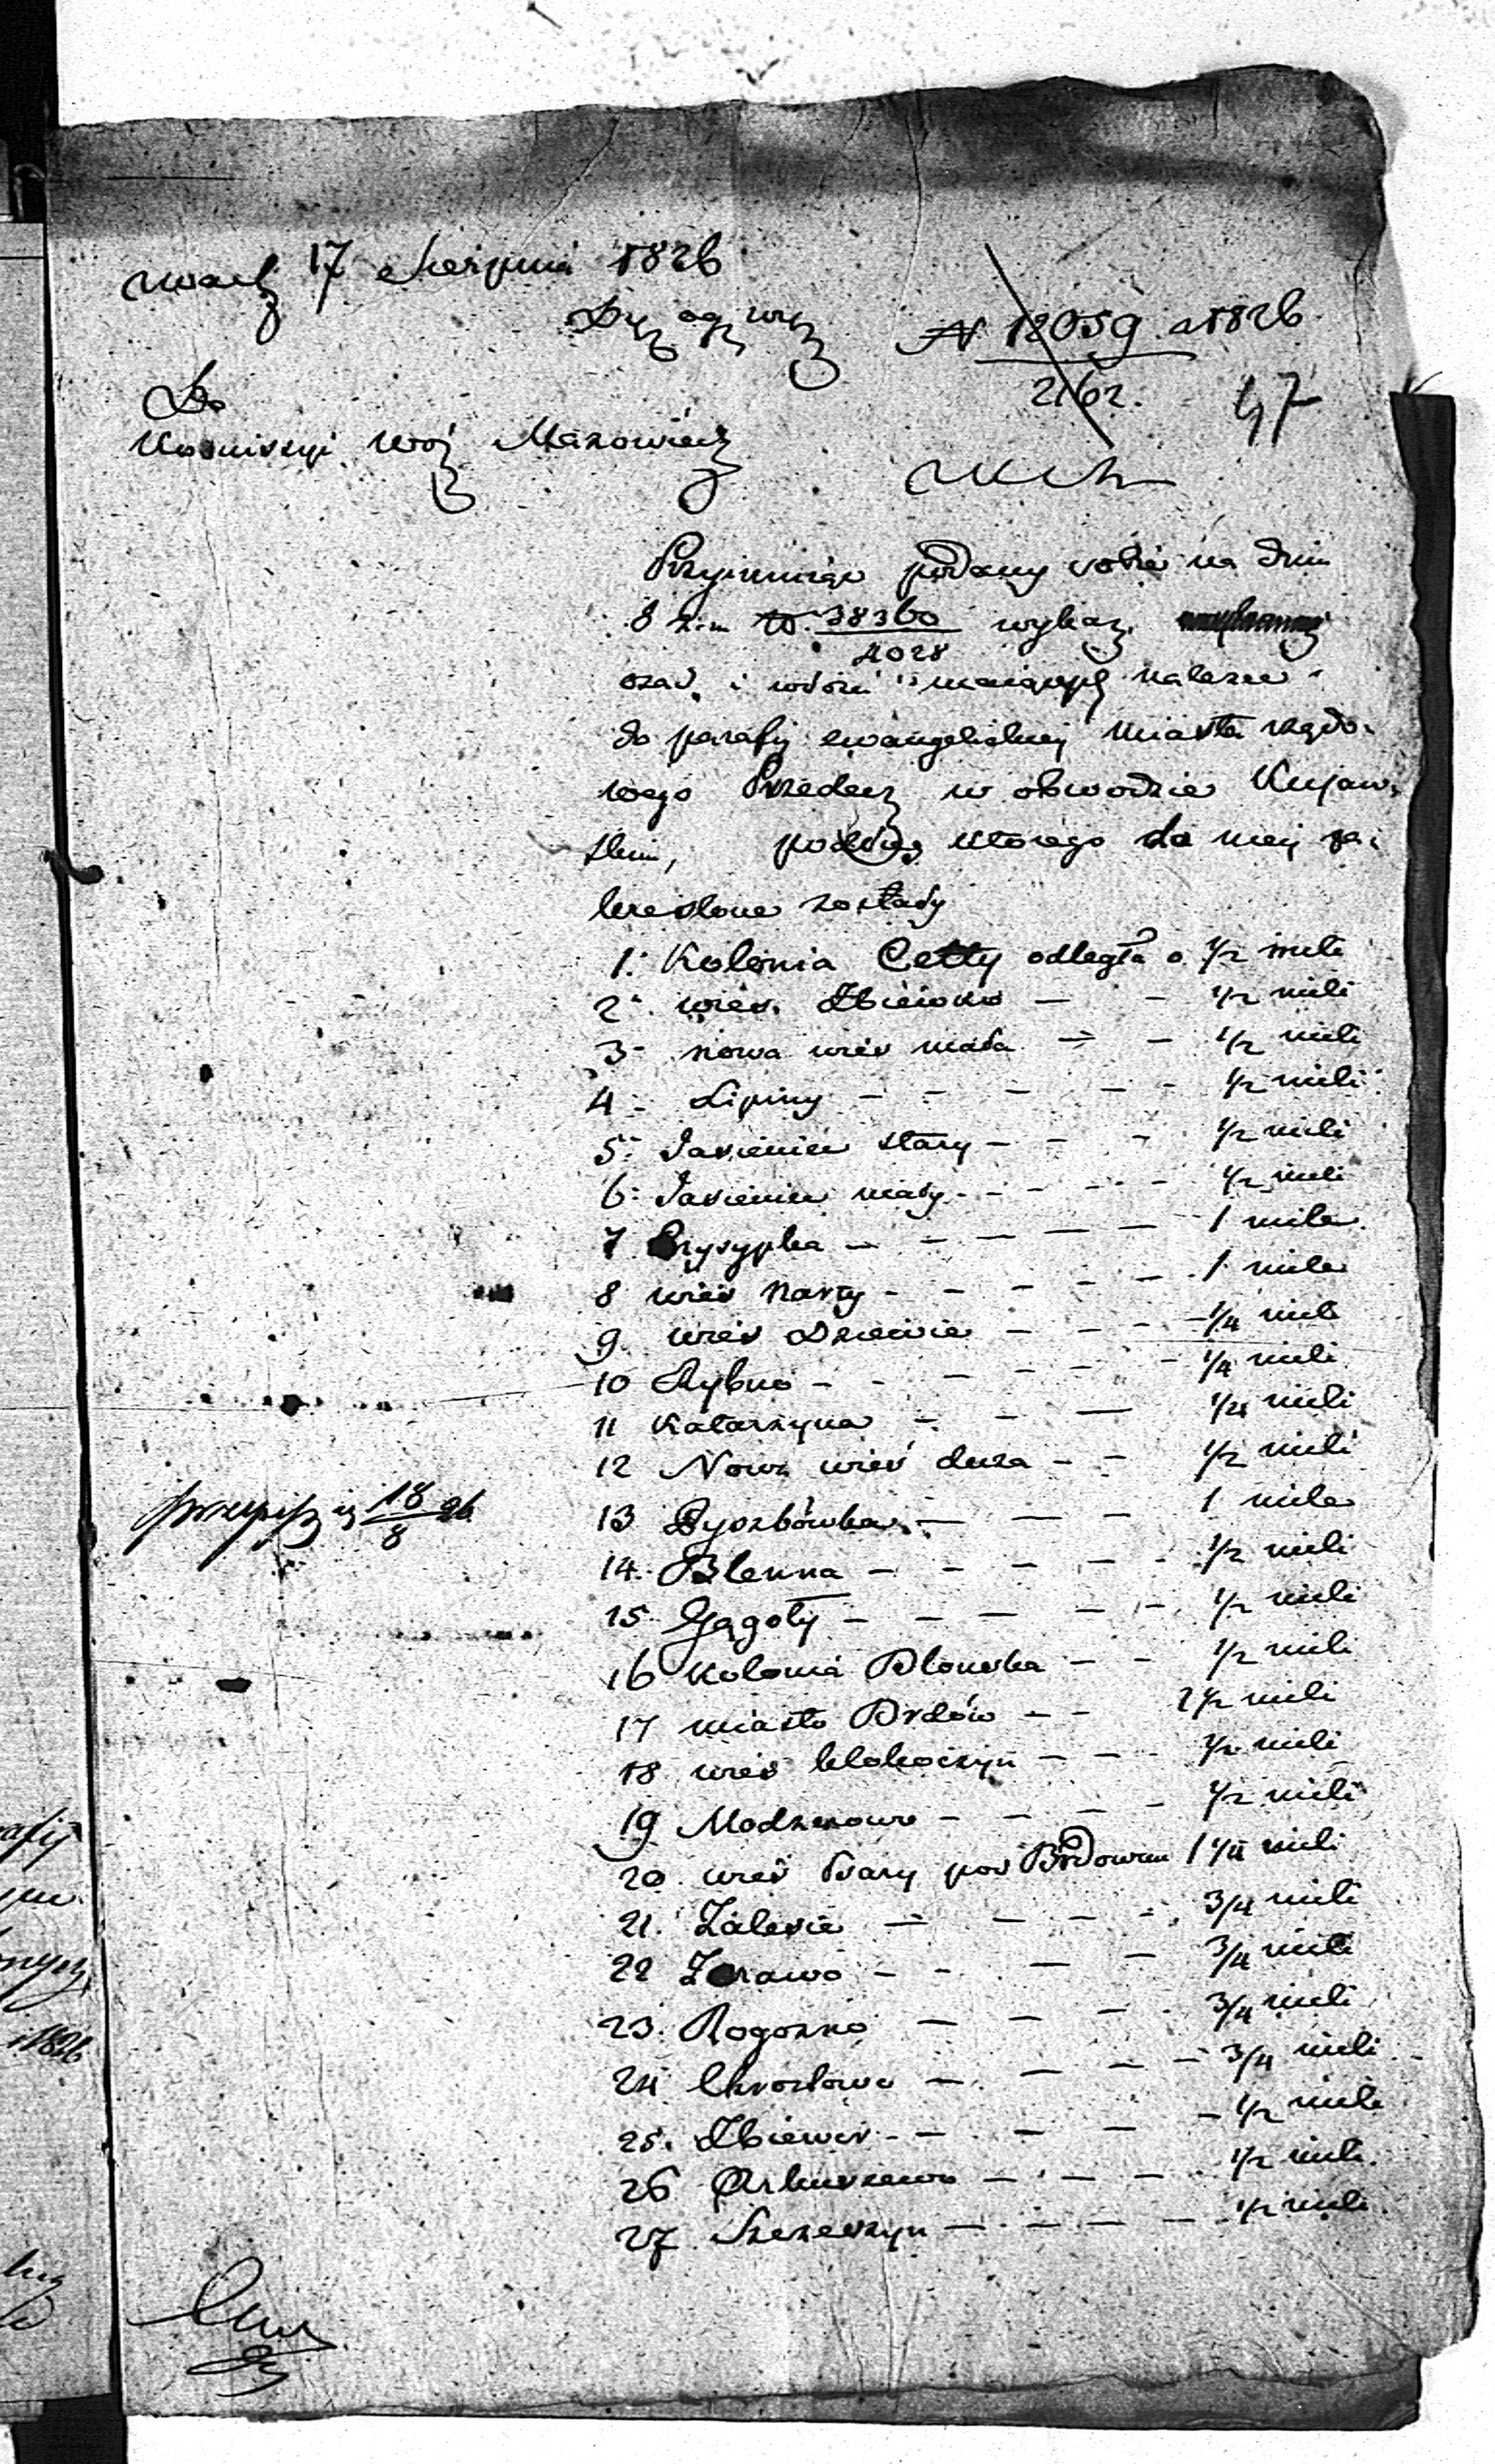 17 Sierpnia 1826
N 12059 a 1826
2162. 47
Do
Kommissyi Woj Mazowiec
Przyimuiąc podany sobie na dniu
8 38360 wykaz
4028
osad i włości maiących należeć
do parafij ewangelickiey miasta rządo-
wego Przedecz w obwodzie Kujaw-
skim, podług którego do niey za-
kreślone zostały
1. Kolonia Cetty odległa o 1/2 mili
2. wieś Zbiewko — - 1/2 mili
3 nowa wieś mała — - 1/2 mili
4 Lipiny - - - - - 1/2 mili
5. Jasieniec stary - - - 1/2 mili
6. Jasieniec mały - - - - 1/2 mili
7 Przysypka - - - - 1 mila
8 wieś Narty - - - - 1 mila
9 wieś Dziewie - - - 1/4 mili
10 Rybno - - - - - 1/4 mili
11 Katarzyna - - — 1/4 mili
12 Nowa wieś duża - - 1/2 mili
przepis 18/8 26
13 Dyszbówka - - - 1 mila
14. Blenna - - - - - 1/2 mili
15 Gągoły - - - - - 1/2 mili
16 Kolonia Błonska - - 1/2 mili
17 miasto Brdów - - 1 1/2 mili
18 wieś Kłokoczyn - - - 1/2 mili
19 Modzerowo - - - - 1/2 mili
20 wieś Psary pod Brdowem 1 1/4 mili
21. Zalesie - - - - 3/4 mili
22 Żarowo - - - - 3/4 mili
23. Rogozno - - - - 3/4 mili
24 Chrostowo - - - - 3/4 mili
25. Zbiewiec - - - - 1/2 mili
26 Arkuszewo - - - - 1/2 mili
27 Szczeszyn - - - - 1/2 mili